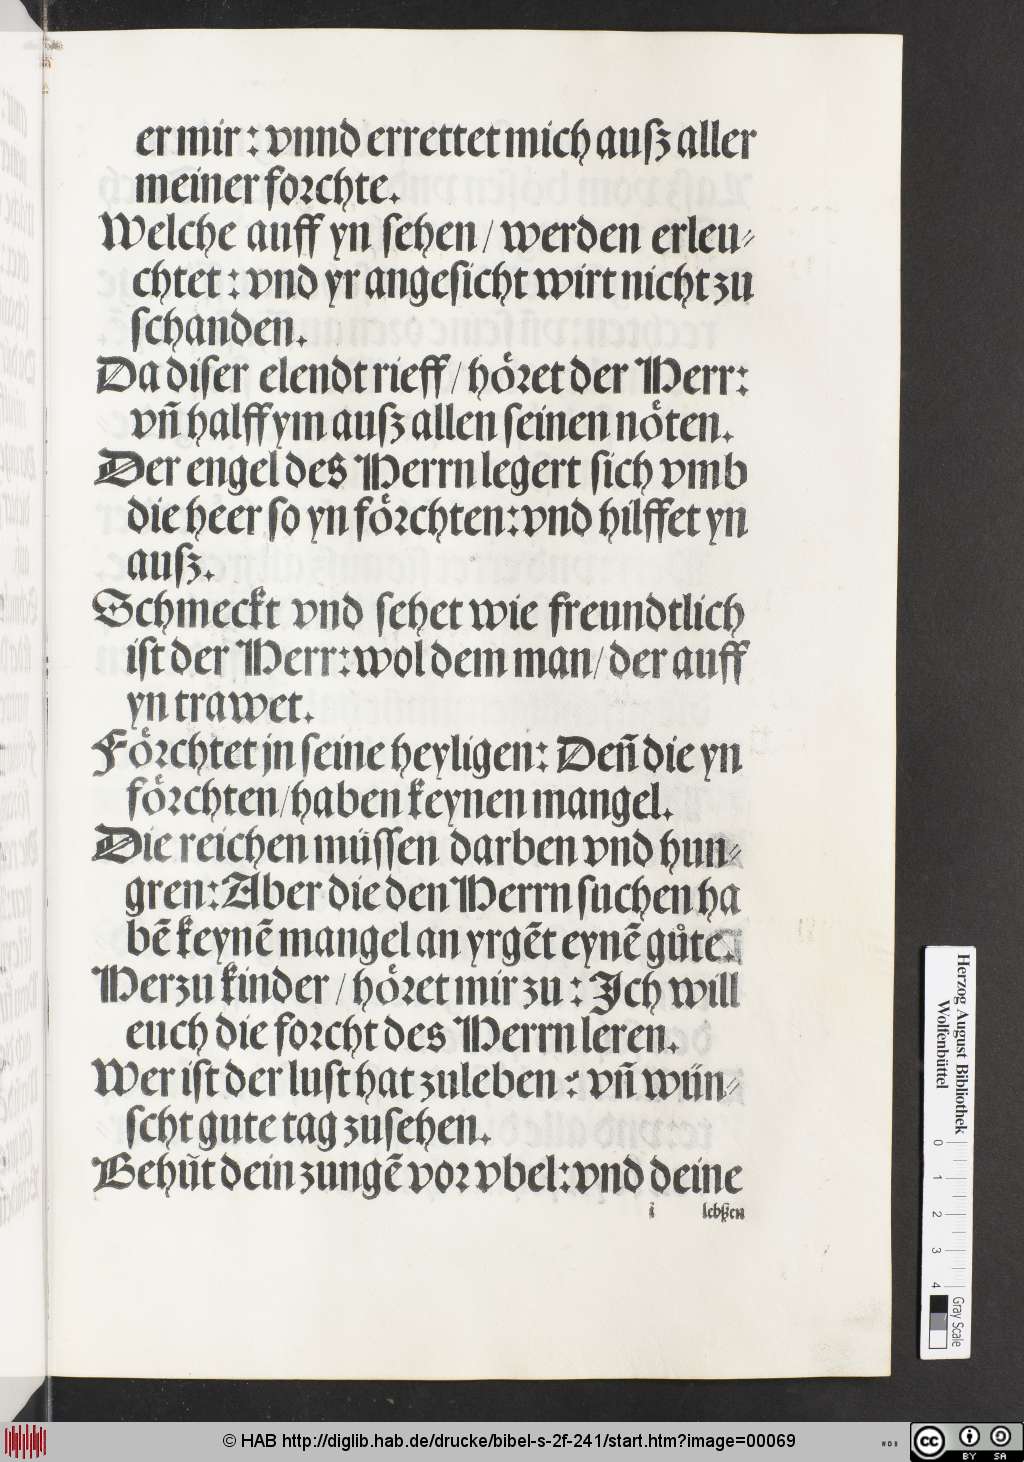 er mir : vnnd errettet mich auſz aller
meiner foꝛchte.
Welche auff yn ſehen / werden erleu⸗
chtet : vnd yr angeſicht wirt nicht zu
ſchanden.
Da diſer elendt rieff / hoͤꝛet der Herr:
vñ halff ym auſz allen ſeinen noͤten.
Der engel des Herrn legert ſich vmb
die heer ſo yn foͤꝛchten: vnd hilffet yn
auſz.
Schmeckt vnd ſehet wie freundtlich
iſt der Herr: wol dem man / der auff
yn trawet.
Foͤꝛchtet jn ſeine heyligen: Deñ die yn
foͤꝛchten / haben keynen mangel.
Die reichen müſſen darben vnd hun⸗
gren: Aber die den Herrn ſuchen ha
bẽ keynẽ mangel an yrgẽt eynẽ gůte.
Herzu kinder / hoͤꝛet mir zu : Ich will
euch die foꝛcht des Herrn leren.
Wer iſt der luſt hat zuleben : vñ wün⸗
ſcht gute tag zuſehen.
Behüt dein zungẽ voꝛ vbel: vnd deine
i lebſzen
Herzog August Bibliothek
Wolfenbüttel
0 1 2 3 4
Gray Scale
© HAB http://diglib.hab.de/drucke/bibel-s-2f-241/start.htm?image=00069
WDB
cc BY SA